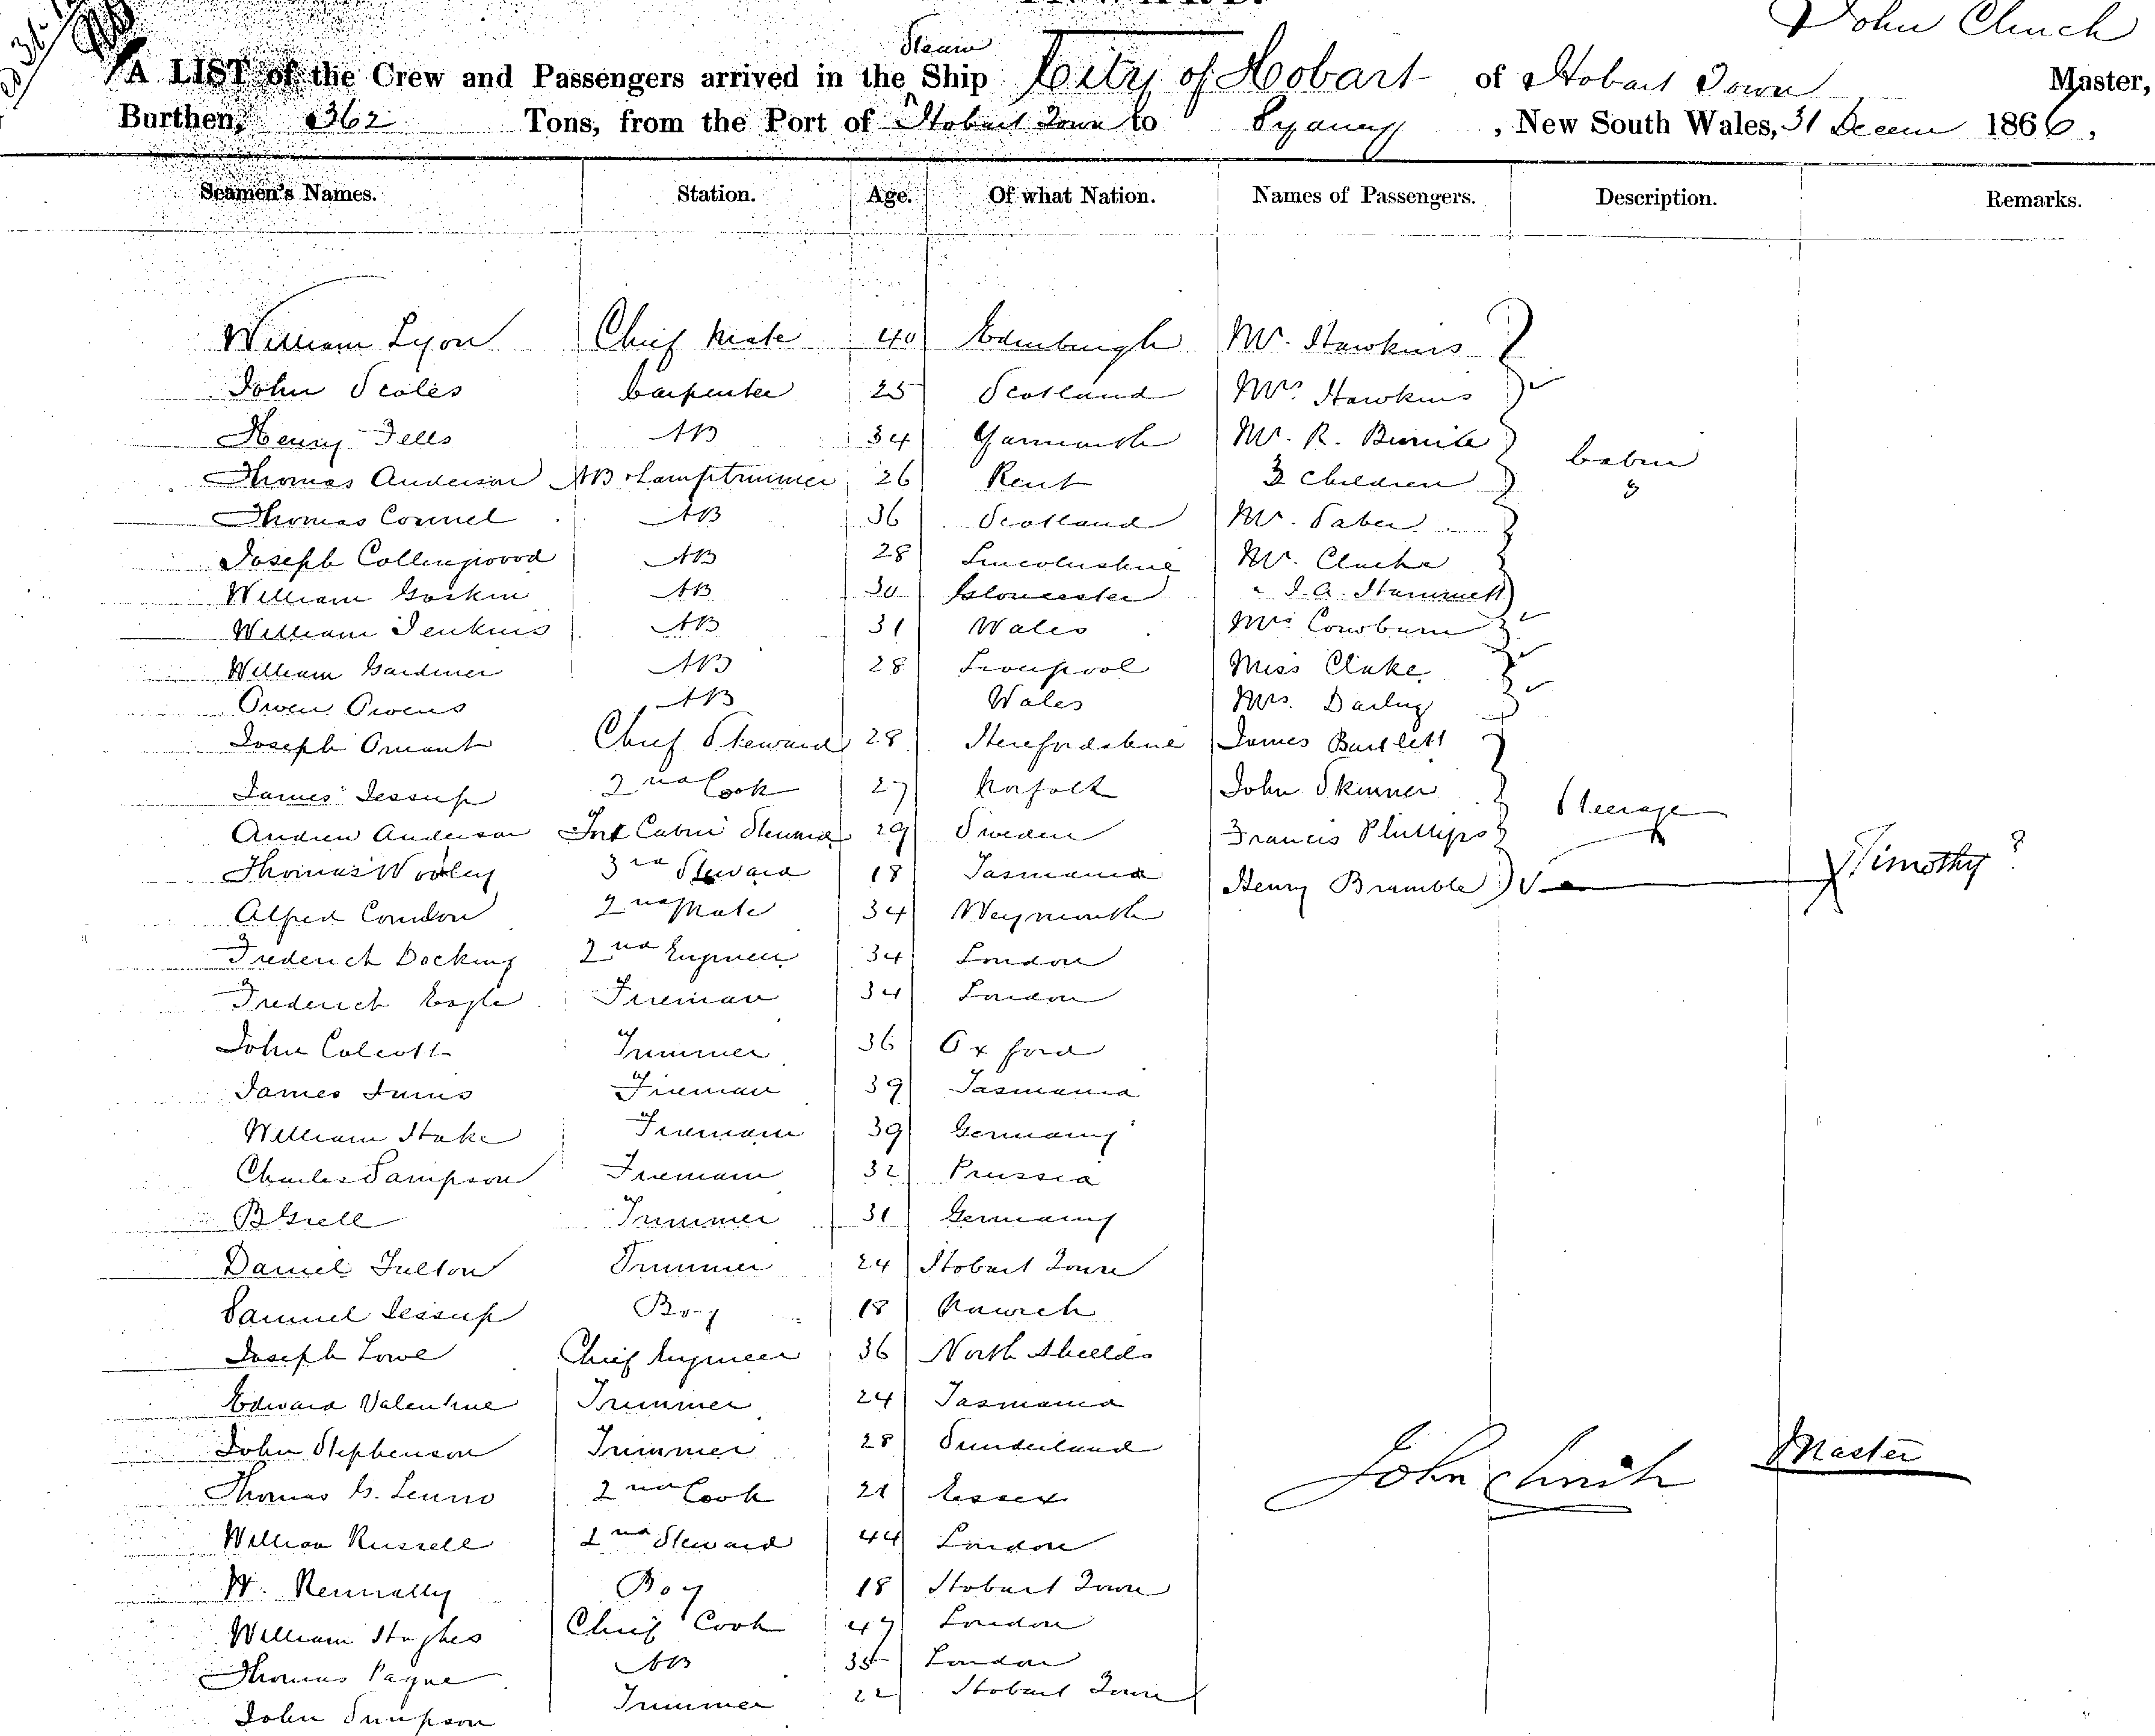 John Clinch
Steam
A LIST of the Crew and Passengers arrived in the Ship City of Hobart of Hobart Town Master,
Burthen, 362 Tons, from the Port of Hobart Town to Sydney, New South Wales, 31 Decem 1866,
Seamen's Names. Station. Age. Of what Nation. Names of Passengers. Description. Remarks.
William Lyon Chief Mate 40 Edinburgh Mr. Hawkins
John Scoles Carpenter 25 Scotland Mrs. Hawkins
Henry Fells AB 34 Yarmouth Mr. R.
Thomas Anderson AB & Lamptrimmer 26 Kent 3 Children Cabin
Thomas Connel AB 36 Scotland Mr.
Joseph Collingwood AB 28 Lincolnshire Mr. Clarke
William Goskin AB 30 Gloucester
William Jenkins AB 31 Wales Mrs Cowburn
William Gardiner AB 28 Liverpool Miss Clarke
Owen Owens AB Wales Mrs. Darling
Joseph Chief Steward 28 Herefordshire James Bartlett
James Jessup 2nd Cook 27 Norfolk John Skinner
Andrew Anderson Fore Cabin Steward 29 Sweden Francis Phillips Steerage
Thomas Worley 3rd Steward 18 Tasmania Henry Bramble Timothy?
Alfred Condon 2nd Mate 34 Weymouth
Frederick Docking 2nd Engineer 34 London
Frederick Eagle Fireman 34 London
John Colcott Trimmer 36 Oxford
James Fireman 39 Tasmania
William Stake Fireman 39 Germany
Charles Sampson Fireman 32 Prussia
B Grell Trimmer 31 Germany
Daniel Fulton Trimmer 24 Hobart Town
Samuel Jessup Boy 18
Joseph Lowe Chief Engineer 36 North Shields
Edward Valentine Trimmer 24 Tasmania
John Stephenson Trimmer 28 Sunderland
John Clinch Master
Thomas 2nd Cook 21 Essex
William Russell 2nd Steward 44 London
W. Kennally Boy 18 Hobart Town
William Hughes Chief Cook 47 London
Thomas Payne AB 35 London
John Simpson Trimmer 22 Hobart Town